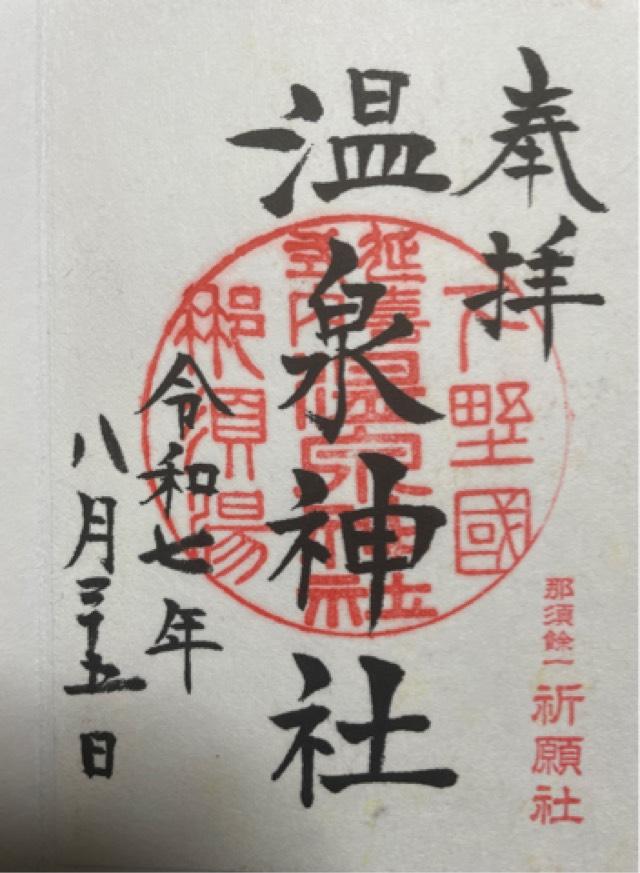 奉拝
温泉神社
令和七年
八月二十五日
下野國
延喜
式内
温泉神社
那須湯
那須餘一
祈願社